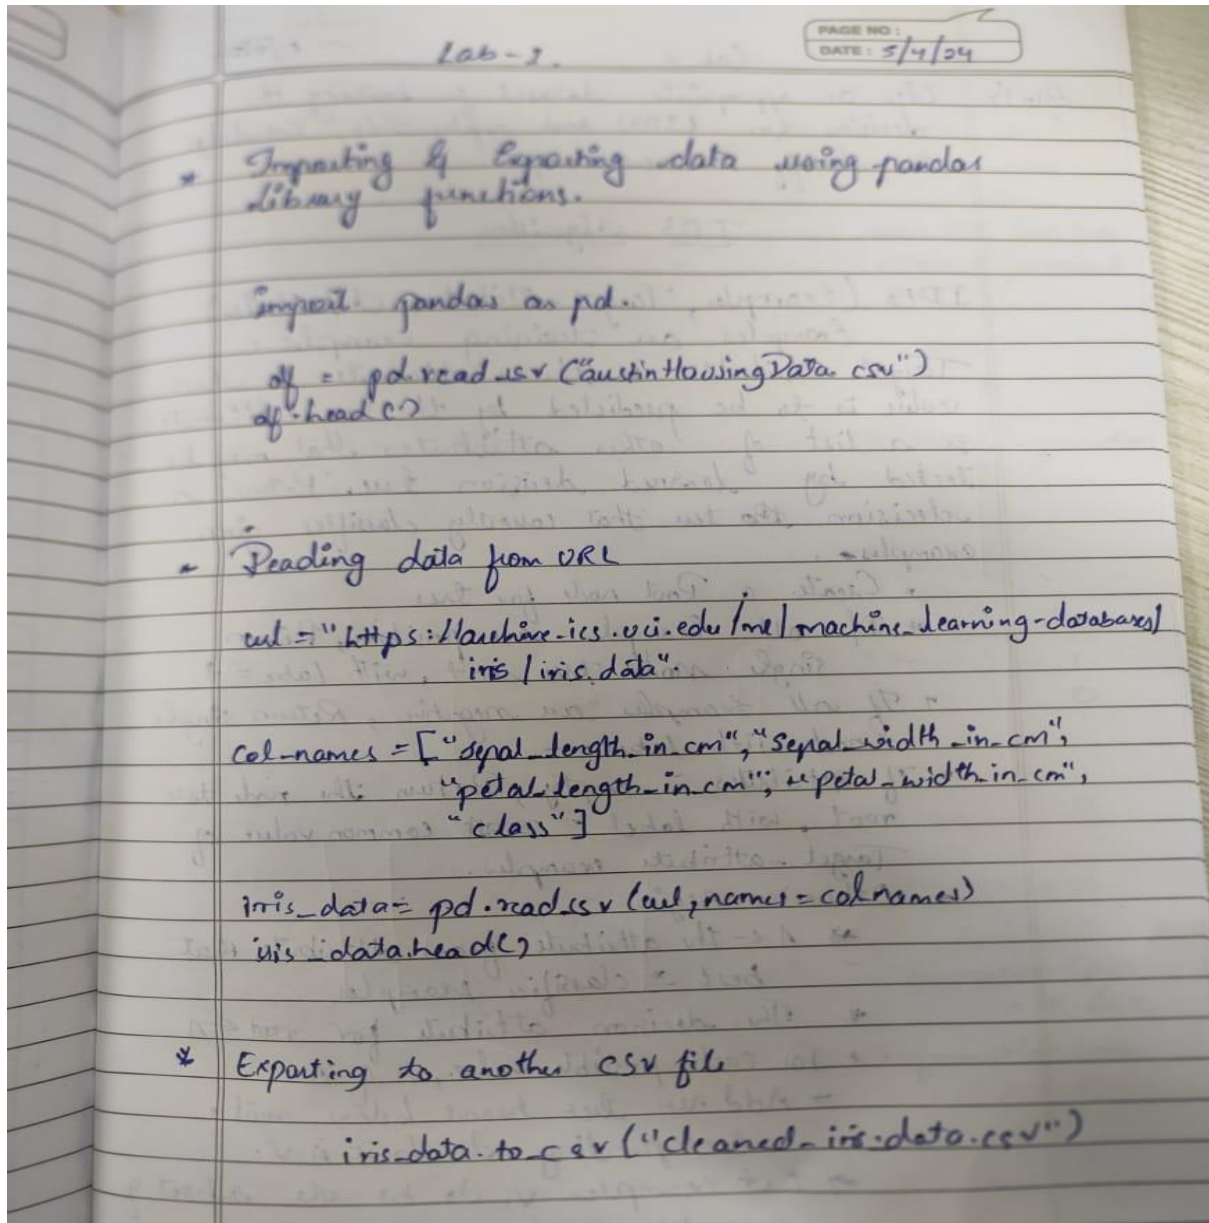 PAGE NO :
DATE : 5/4/24
Lab - 1.
* Importing & Exporting data using pandas
library functions.
import pandas as pd.
df = pd.read_csv ("austinHousingData.csv")
df.head()
Reading data from URL
url = "https://archive.ics.uci.edu/ml/machine_learning-databases/
iris/iris.data".
col-names = ["sepal_length_in_cm", "sepal_width_in_cm",
"petal_length_in_cm", "petal_width_in_cm",
"class"]
iris_data = pd.read_csv (url, names = colnames)
iris_data.head()
* Exporting to another csv file
iris_data.to_csv ("cleaned_iris_data.csv")